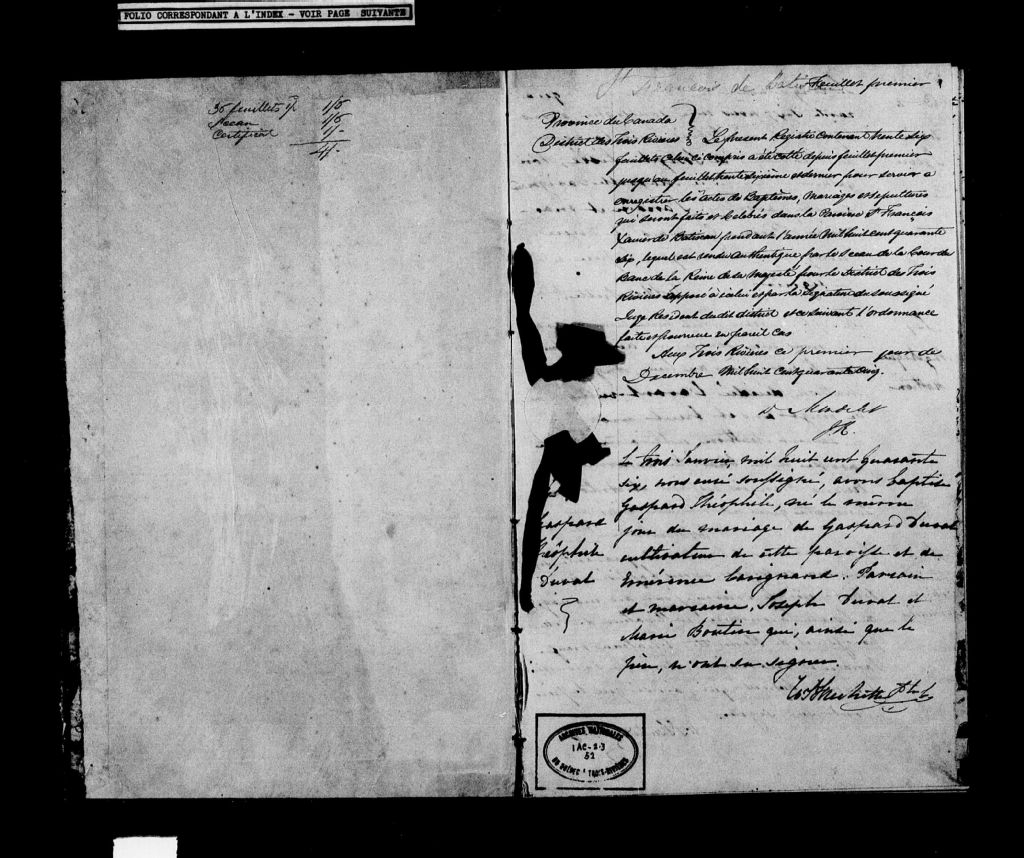 FOLIO CORRESPONDANT A L'INDEX - VOIR PAGE SUIVANTE
36 feuillets 1/6
Sceau 1/6
Certificat 1/-
4/-
St François de feuillet premier
Province du Canada
District des Trois Rivières Le présent Registre contenant trente six
feuillets celui ci compris a été cotté depuis feuillet premier
jusqu'au feuillet trente sixième et dernier pour servir a
enregistrer les actes de Baptêmes, Mariages et sepultures
qui seront faits et Celebrés dans la Paroisse St François
Xavier de Batiscan pendant l'année Mil huit cent quarante
six, lequel est rendu authentique par le Sceau de la Cour du
Banc de la Reine de sa Majesté pour le District des Trois
Rivières apposé à icelui et par la Signature du soussigné
Juge Resident du dit district et ce suivant l'ordonnance
faite et pourvue en pareil cas
Aux Trois Rivières ce premier jour de
Decembre Mil huit cent quarante cinq.
D. Mondelet
J.R.
Le trois Janvier, mil huit cent quarante
six, nous curé soussigné, avons baptisé
Gaspard Théophile, né le même
jour du mariage de Gaspard Duval
cultivateur de cette paroisse et de
Emérence Carignand. Parrain
et marraine, Joseph Duval et
Marie Boutin qui, ainsi que le
père, n'ont su signer
Gaspard
Théophile
Duval
ARCHIVES NATIONALES
1AC-2-3
52
DU QUÉBEC À TROIS-RIVIÈRES